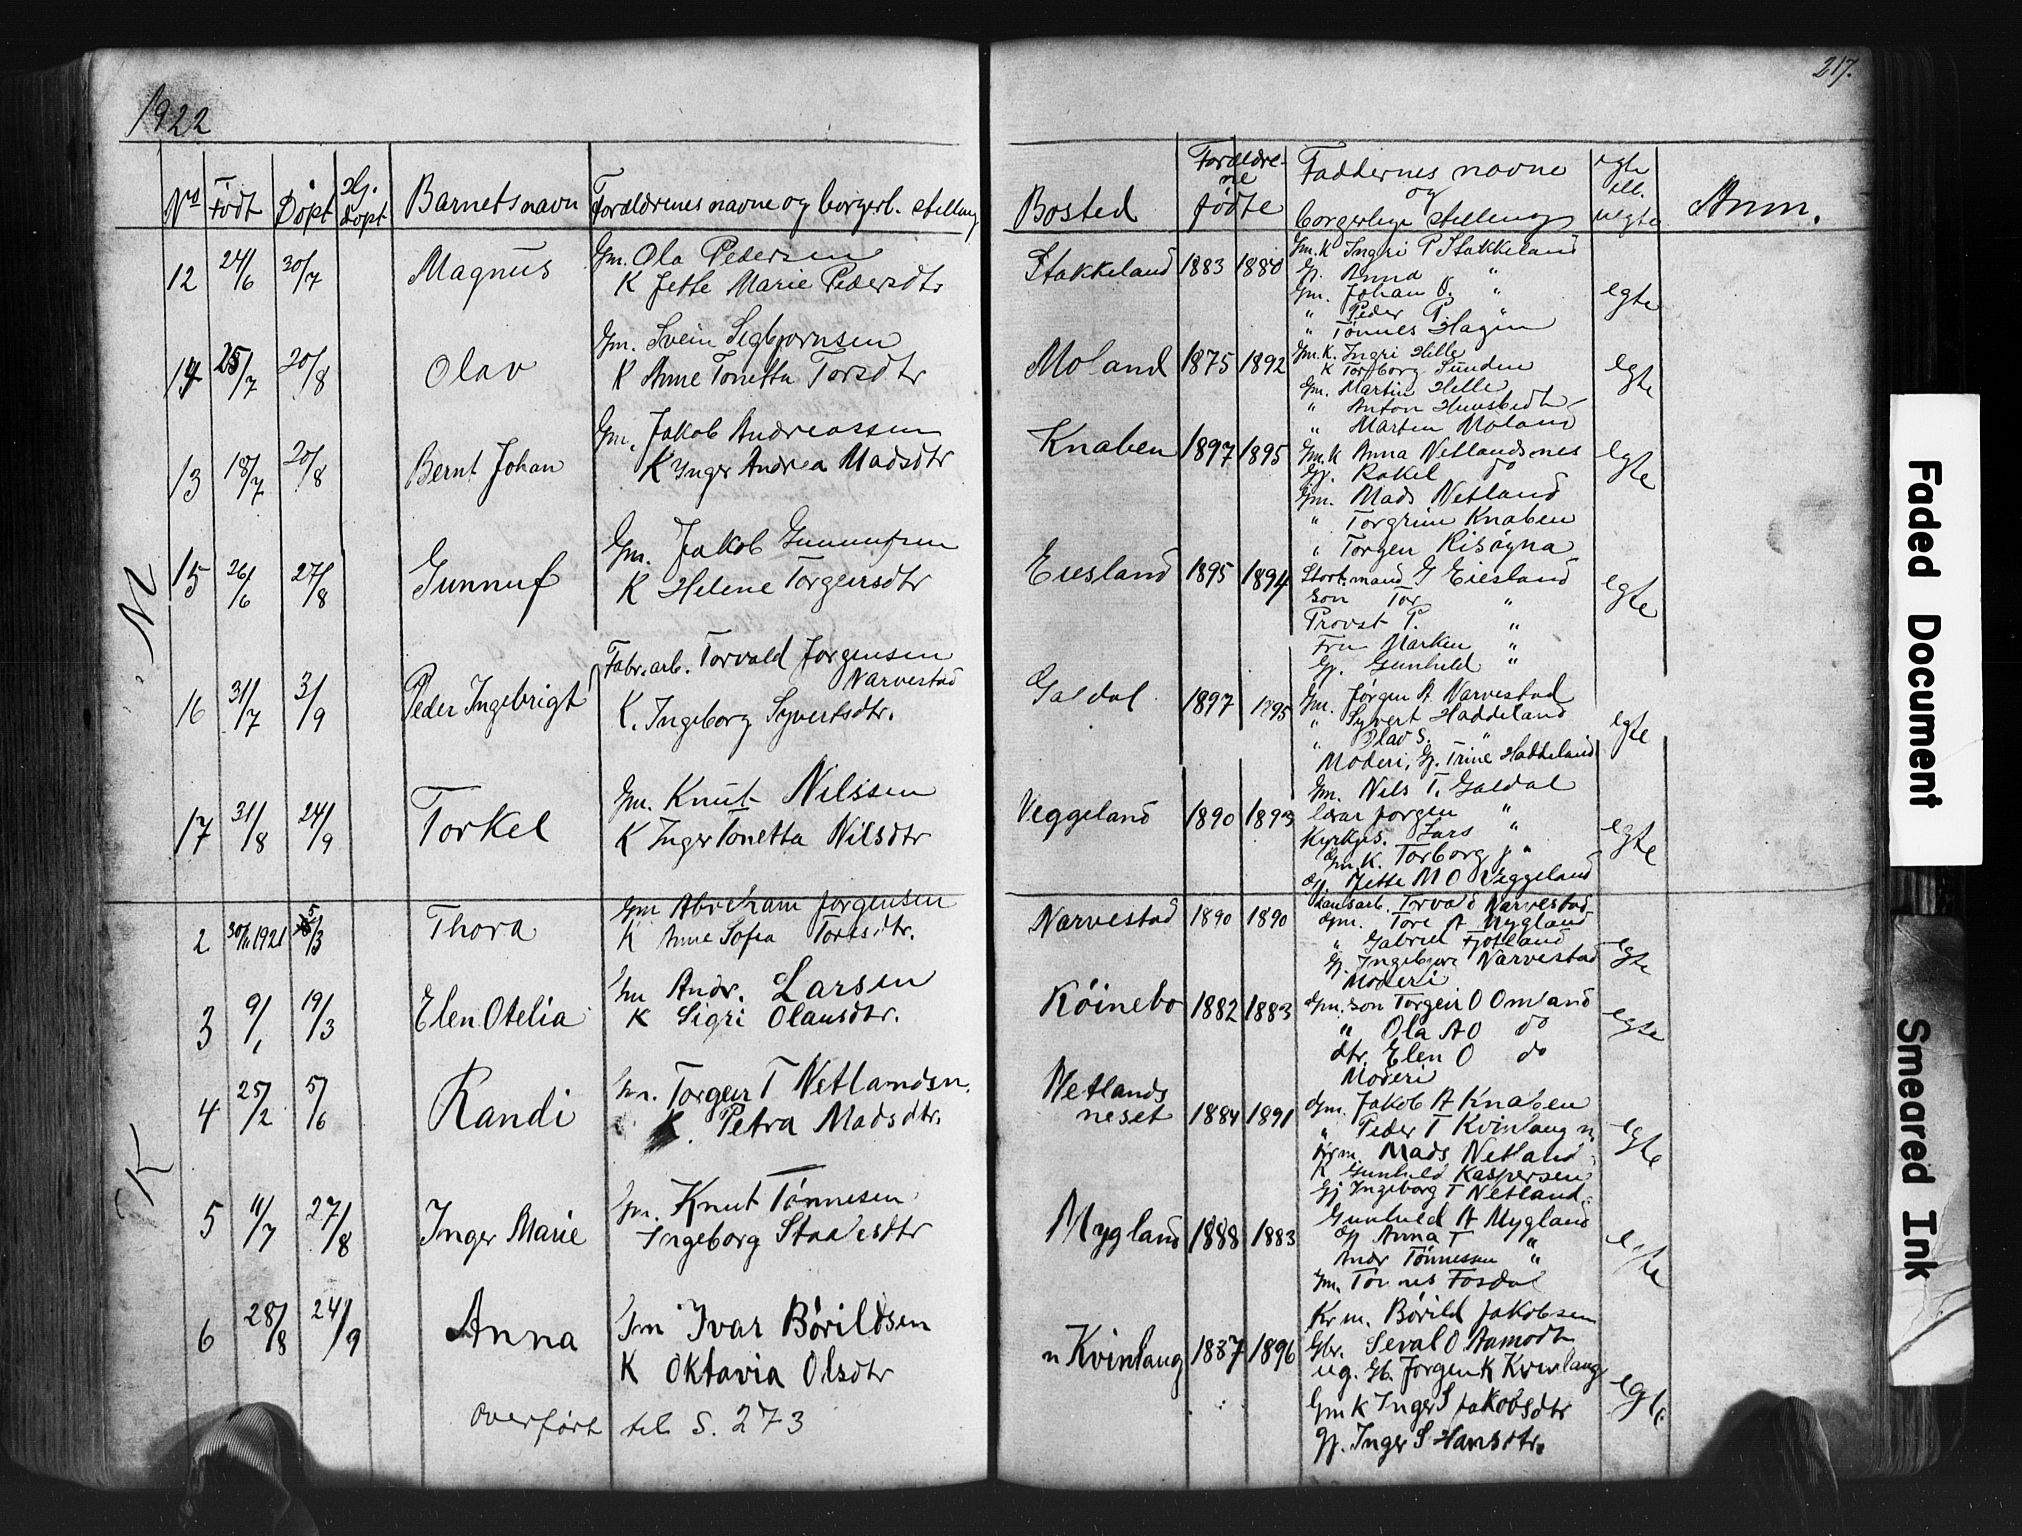 1922
217.
No Født Døpt Hj. døpt Barnets navn Forældrenes navne og borgerl. stilling Bosted Forældrene fødte Faddernes navne og borgerlige stilling egte ell. uegte Anm.
M
12 24/6 30/7 Magnus
Gm. Ola Pedersen
K Jette Marie Pedersdtr
Stakkeland 1883 1880
Gm. K Ingri P Stakkeland
Gj. Anna "
Gm. Johan O. "
" Peder P. "
" Tønnes Hagen
egte
14 25/7 20/8 Olav
Gm. Svein Sigbjørnsen
K Anne Tonetta Torsdtr
Moland 1875 1892
Gm. K. Ingri Helle
K Torborg Sunden
Gm. Martin Helle
" Anton
" Martin Moland
egte
13 18/7 20/8 Bernt Johan
Gm. Jakob Andreassen
K Inger Andrea Madsdtr
Knaben 1897 1895
Gm. K Anna Netlandsnes
Gj. Rakel do
Gm. Mads Netland
" Torgrim Knaben
" Torgeir Risøyna
egte
15 26/6 27/8 Gunnuf
Gm. Jakob Gunnufsen
K Helene Torgeirsdtr
Eiesland 1895 1894
Stort.mand G Eiesland
son Tor "
Provst P. "
Fru Marken "
Gj. Gunhild "
egte
16 31/7 3/9 Peder Ingebrigt
Fabr.arb. Torvald Jørgensen
Narvestad
K. Ingeborg Syvertsdtr.
Galdal 1897 1895
Gm. Jørgen A Narvestad
" Syvert Haddeland
" Olav S. "
Moderi, Gj. Trine Haddeland
egte
17 31/8 24/9 Torkel
Gm. Knut Nilssen
K Inger Tonetta Nilsdtr
Veggeland 1890 1893
Gm. Nils T. Galdal
lærar Jørgen "
Kyrkjes. Lars "
Gm. K. Torborg J "
Gj. Jette M O Veggeland
egte
K
2 30/11 1921 5/3 Thora
Gm Abraham Jørgensen
K Anne Sofia Toresdtr.
Narvestad 1890 1890
Torvald Narvestad
Gm. Tore A Mygland
" Gabriel Fjotland
Gj. Ingeborg Narvestad
Moderi
egte
3 9/1 19/3 Elen Otelia
Gm Andr. Larsen
K Sigri Olausdtr.
Køinebo 1882 1883
Gm. son Torgeir O Omland
" Ola A O do
dtr. Elen O do
Moderi
egte
4 25/2 5/6 Randi
Gm. Torgeir T Netlandsn.
K. Petra Madsdtr.
Netlands
neset 1884 1891
Gm. Jakob A Knaben
" Peder T Kvinlaug n
Mads Netland
K Gunhild Kaspersen
Gj Ingeborg T Netland.
egte
5 11/7 27/8 Inger Marie
Gm. Knut Tønnesen
Ingeborg Staalesdtr
Mygland 1888 1883
Gunhild A Mygland
Gj Anna T "
Andr Tønnessen "
Gm. Tønnes Fosdal
egte
6 28/8 24/9 Anna
Gm Ivar Børildsen
K Oktavia Olsdtr
n Kvinlaug 1887 1896
Krm. Børild Jakobsen
Gbr. Seval O Aamodt
ug. Gb. Jørgen K Kvinlaug
Gm K Inger S Jakobsdtr
Gj. Inger S Hansdtr.
egte
overført til S. 273
Faded Document
Smeared Ink